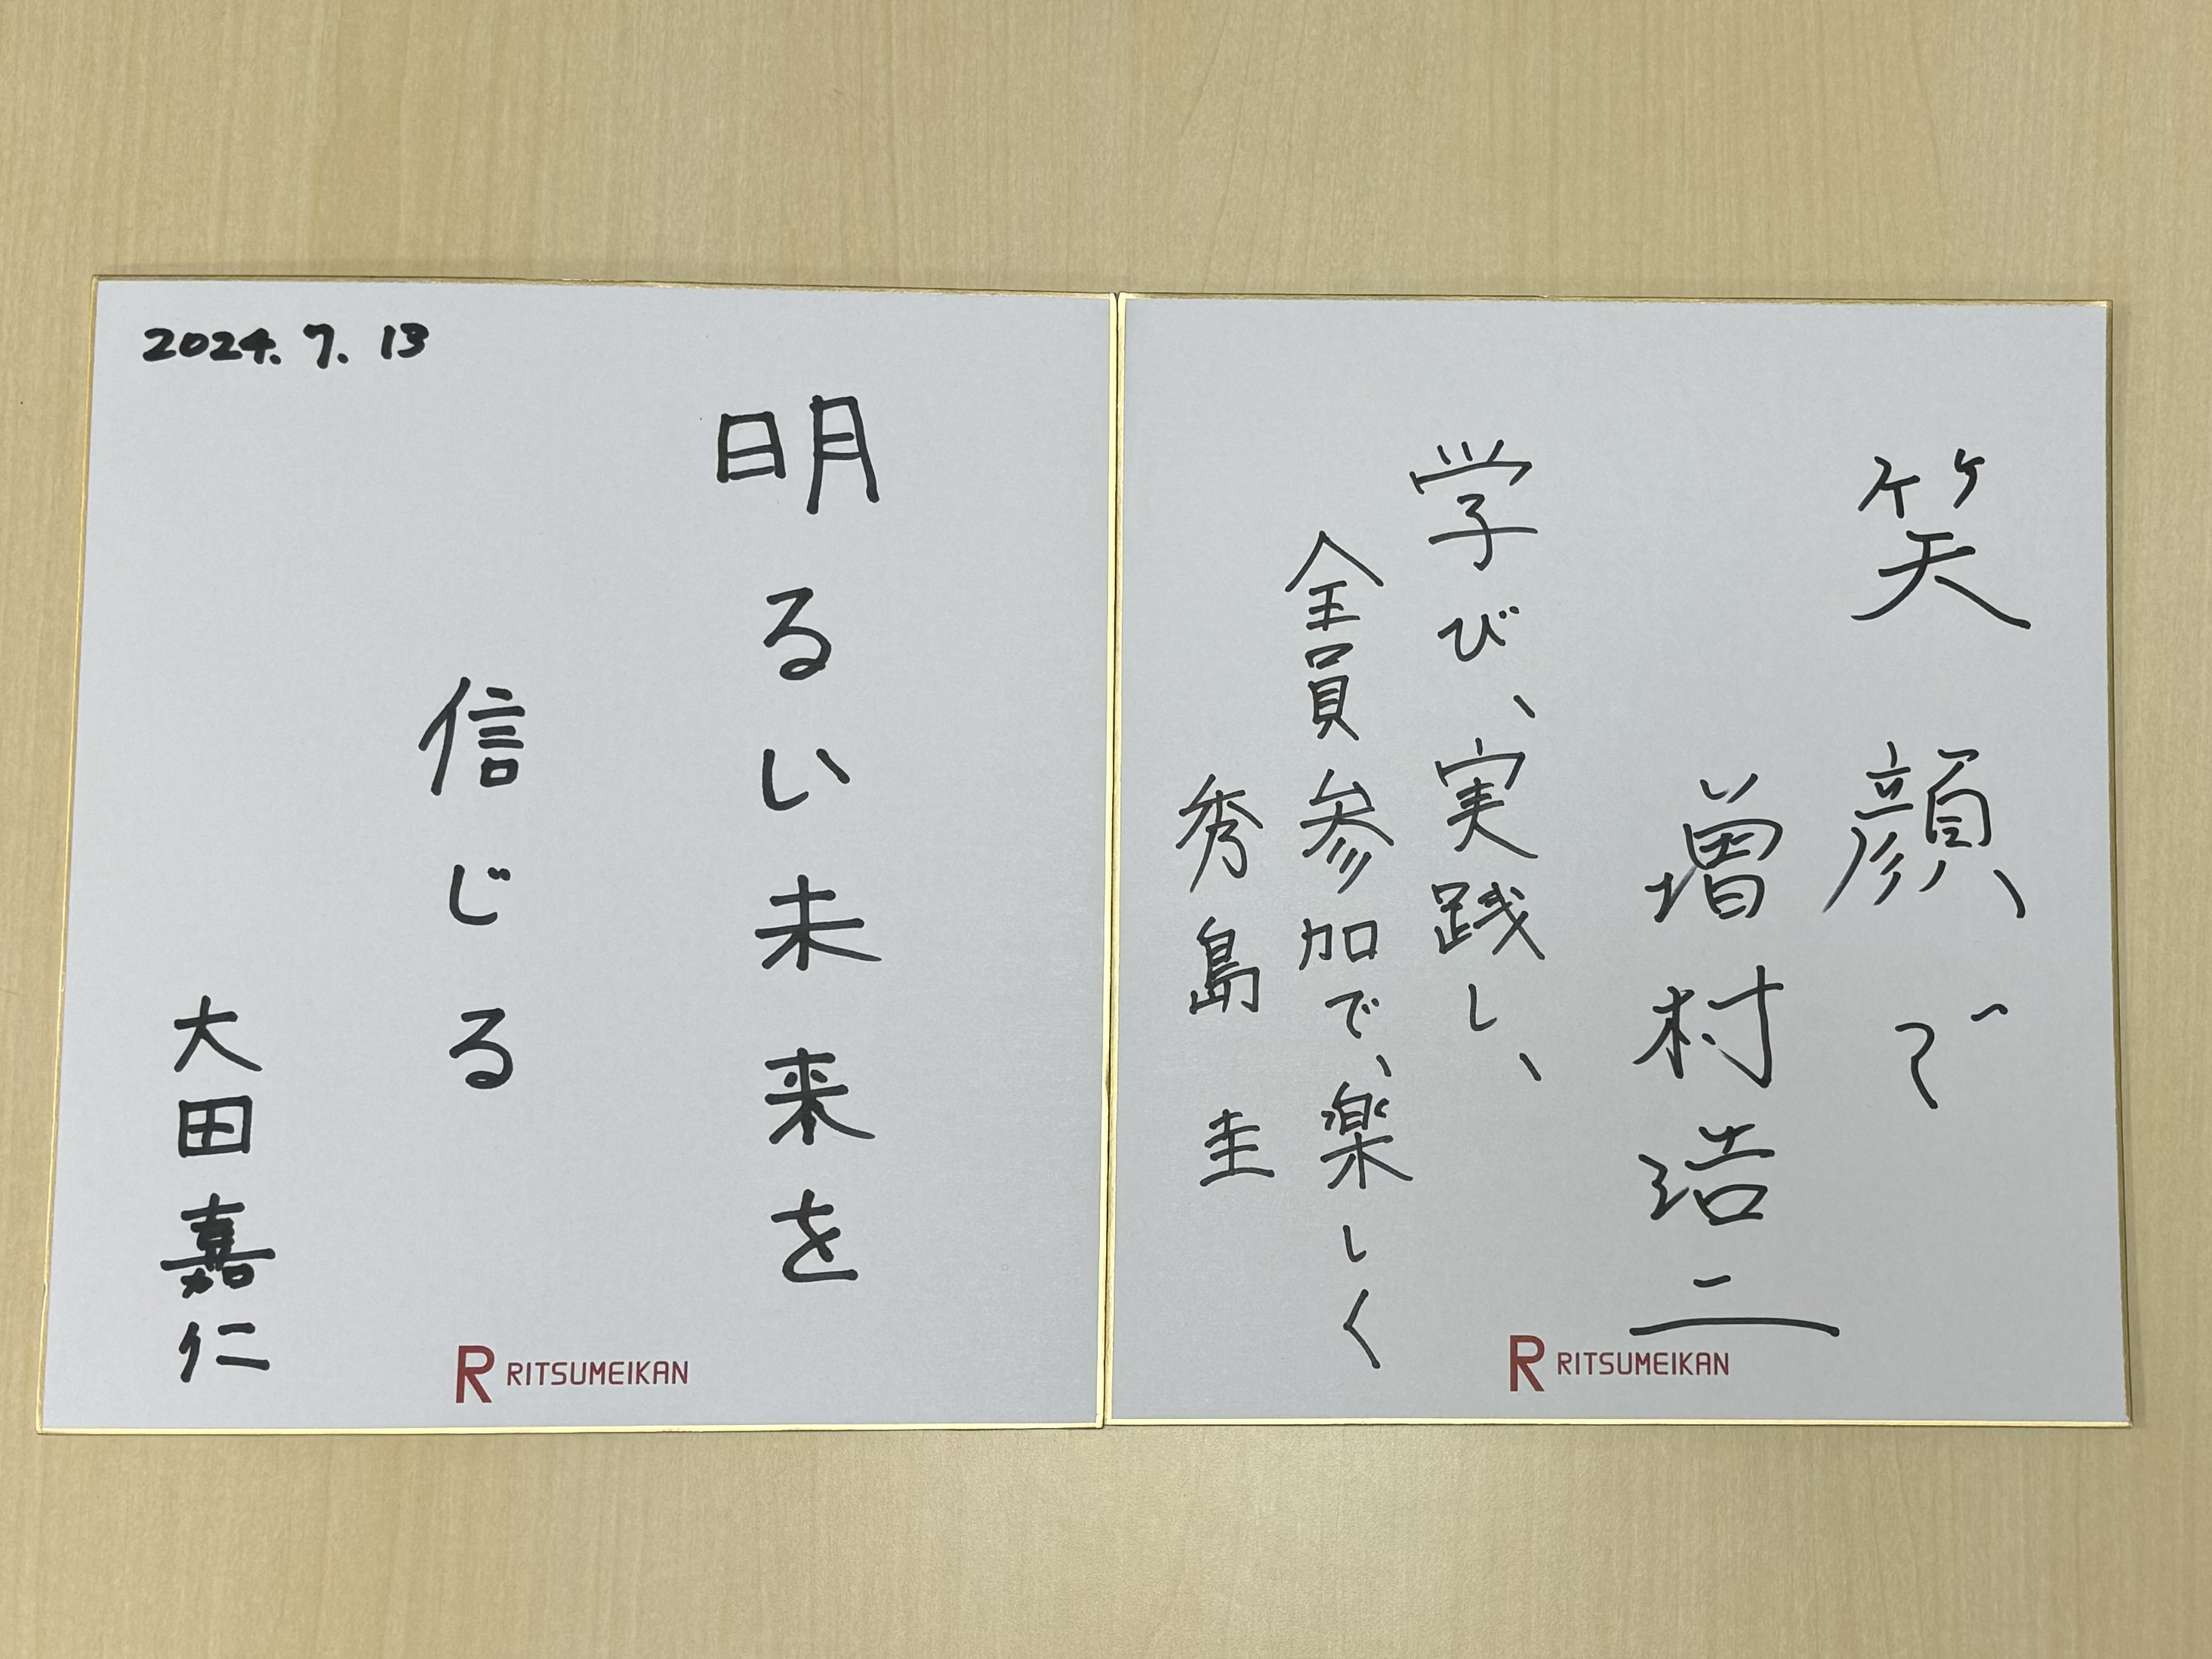 笑顔で
増村浩二
学び、実践し、
全員参加で、楽しく
秀島 圭
RITSUMEIKAN
2024.7.13
明るい未来を
信じる
大田嘉仁
RITSUMEIKAN